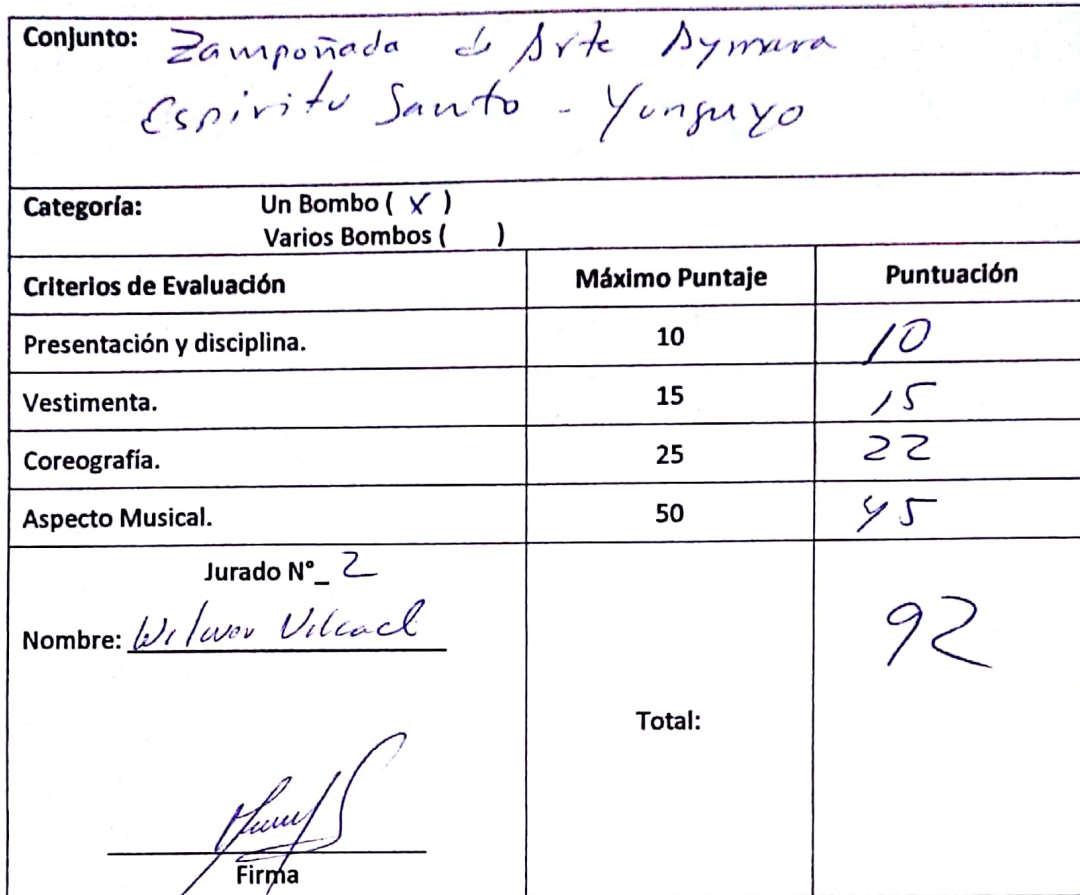 Conjunto: Zampoñada de Arte Aymara
Espiritu Santo - Yunguyo
Categoría: Un Bombo ( X )
Varios Bombos ( )
Criterios de Evaluación Máximo Puntaje Puntuación
Presentación y disciplina. 10 10
Vestimenta. 15 15
Coreografía. 25 22
Aspecto Musical. 50 45
Jurado N°_ 2
Nombre:
Total: 92
Firma